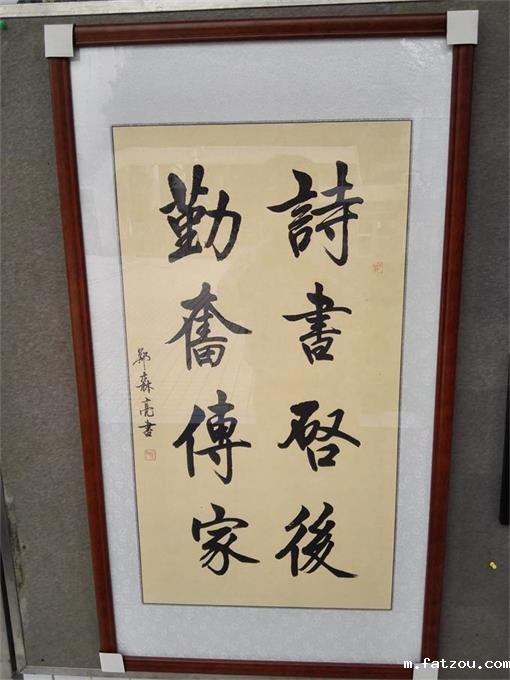 詩書啓後
勤奮傳家
鄭森亮書
m.fatzou.com